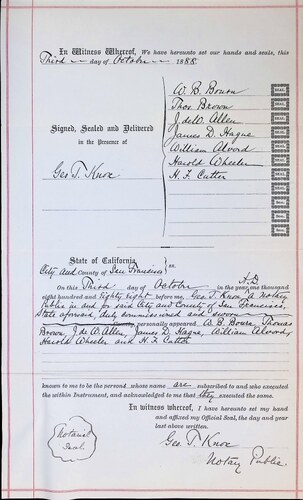 In Witness Whereof, We have hereunto set our hands and seals, this
Third day of October 1888.
W. B. Bourn
Thos Brown
J. deW. Allen
Signed, Sealed and Delivered
James D. Hague
in the Presence of
William Alvord
Geo T. Knox
Harold Wheeler
H. F. Cutter
State of California
City and County of San Francisco ss.
On this Third day of October A.D. in the year, one thousand
eight hundred and Eighty eight before me, Geo. T. Knox a Notary
Public in and for said City and County of San Francisco
State aforesaid, duly commissioned and sworn
personally appeared W. B. Bourn, Thomas
Brown, J. deW. Allen, James D. Hague, William Alvord,
Harold Wheeler and H. F. Cutter
known to me to be the persons whose names are subscribed to and who executed
the within Instrument, and acknowledged to me that they executed the same.
In witness whereof, I have hereunto set my hand
and affixed my Official Seal, the day and year
last above written.
Notarial
Seal.
Geo. T. Knox
Notary Public